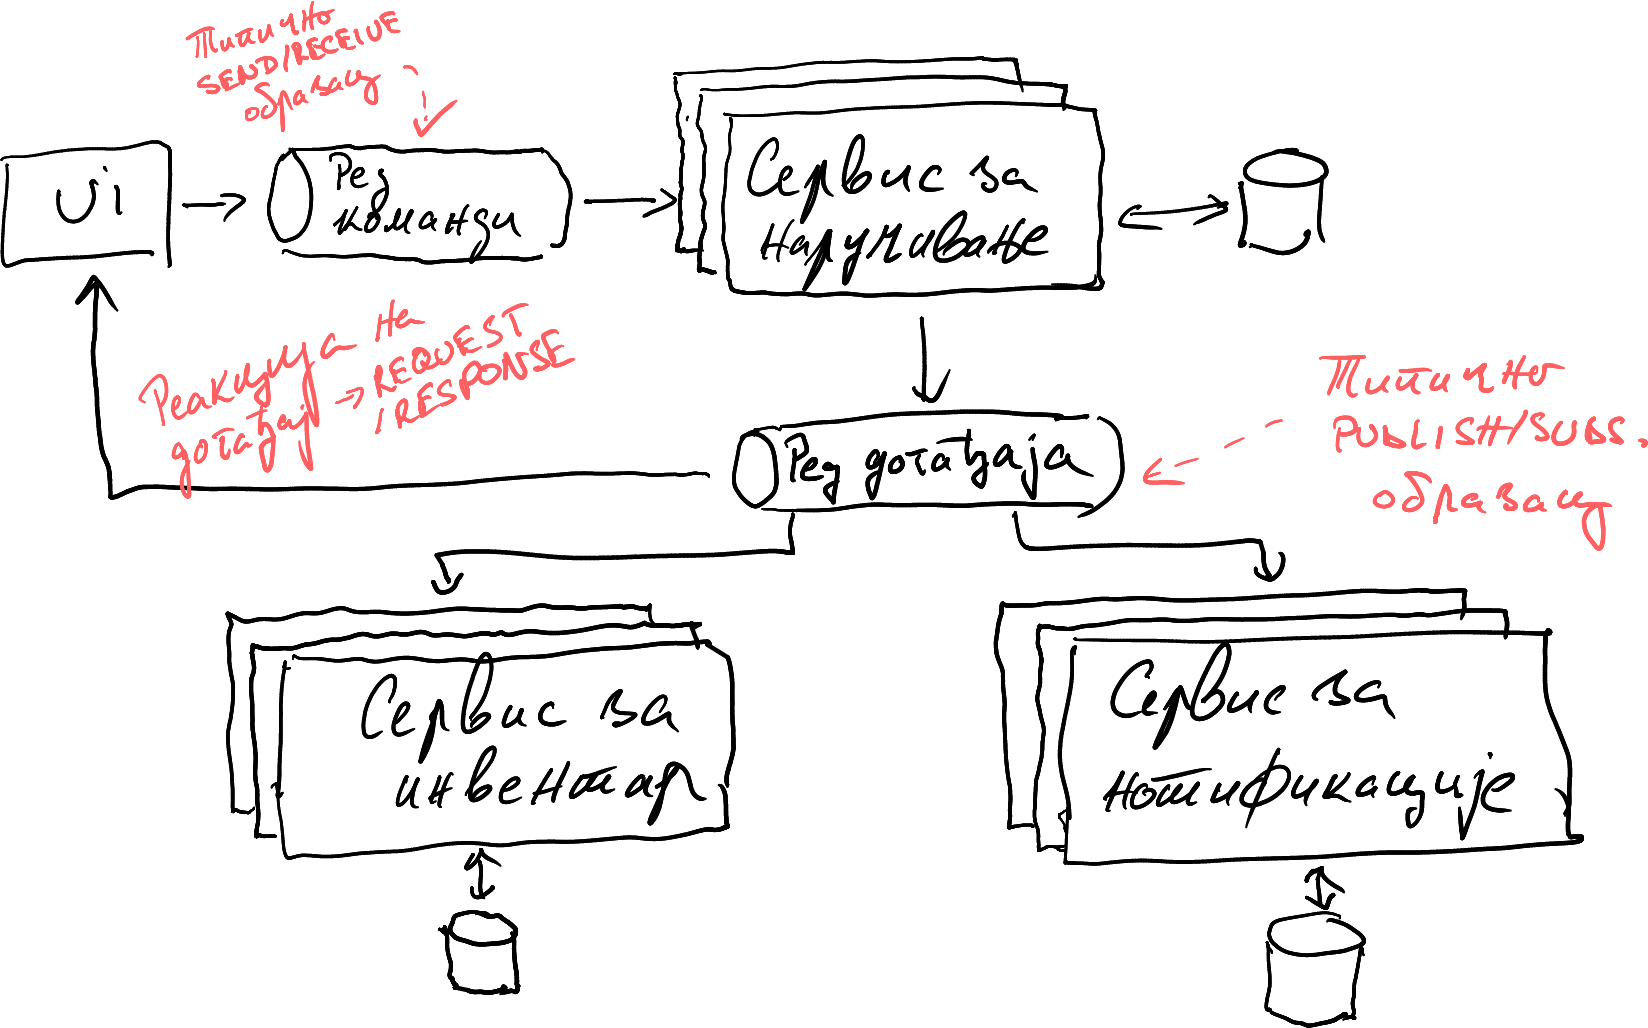 Типично
SEND/RECEIVE
образац
Ui
Ред
команди
Сервис за
наручивање
Реакција на
догађај → REQUEST
/RESPONSE
Ред догађаја
Типично
PUBLISH/SUBS.
образац
Сервис за
инвентар
Сервис за
нотификације